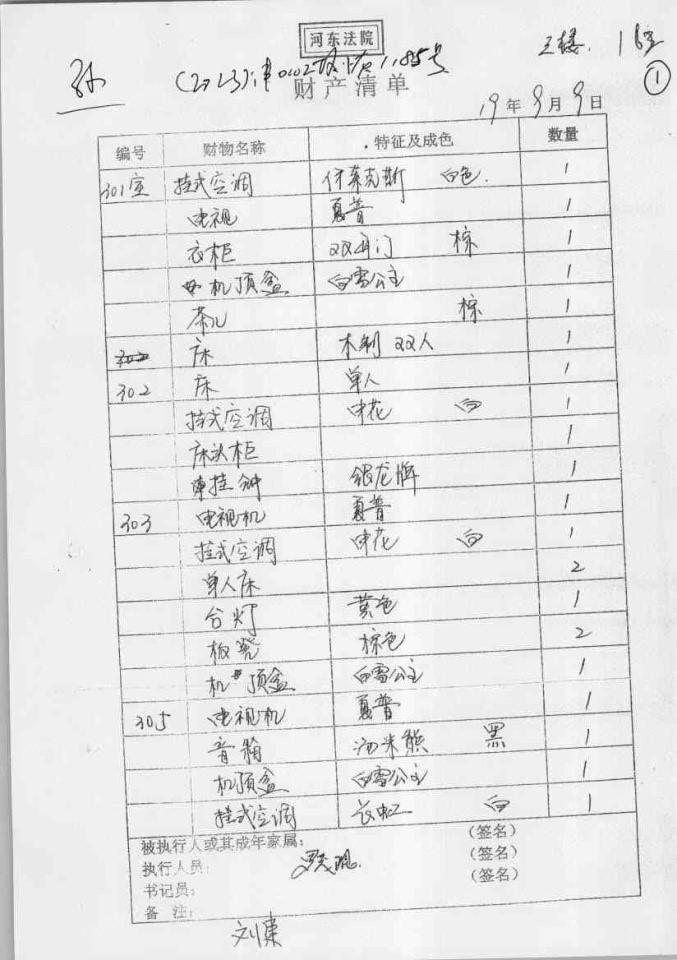 河东法院
1185号
①
财产清单
19年9月9日
编号 财物名称 特征及成色 数量
301室 挂式空调 伊莱克斯 白色 1
电视 夏普 1
衣柜 双开门 棕 1
机顶盒 白雪公主 1
茶几 棕 1
床 木制 双人 1
302 床 单人 1
挂式空调 申花 白 1
床头柜 1
挂钟 银龙牌 1
303 电视机 夏普 1
挂式空调 申花 白 1
单人床 2
台灯 黄色 1
板凳 棕色 2
机顶盒 白雪公主 1
305 电视机 夏普 1
音箱 汤米熊 黑 1
机顶盒 白雪公主 1
挂式空调 长虹 白 1
被执行人或其成年家属: (签名)
执行人员: (签名)
书记员: (签名)
备 注: